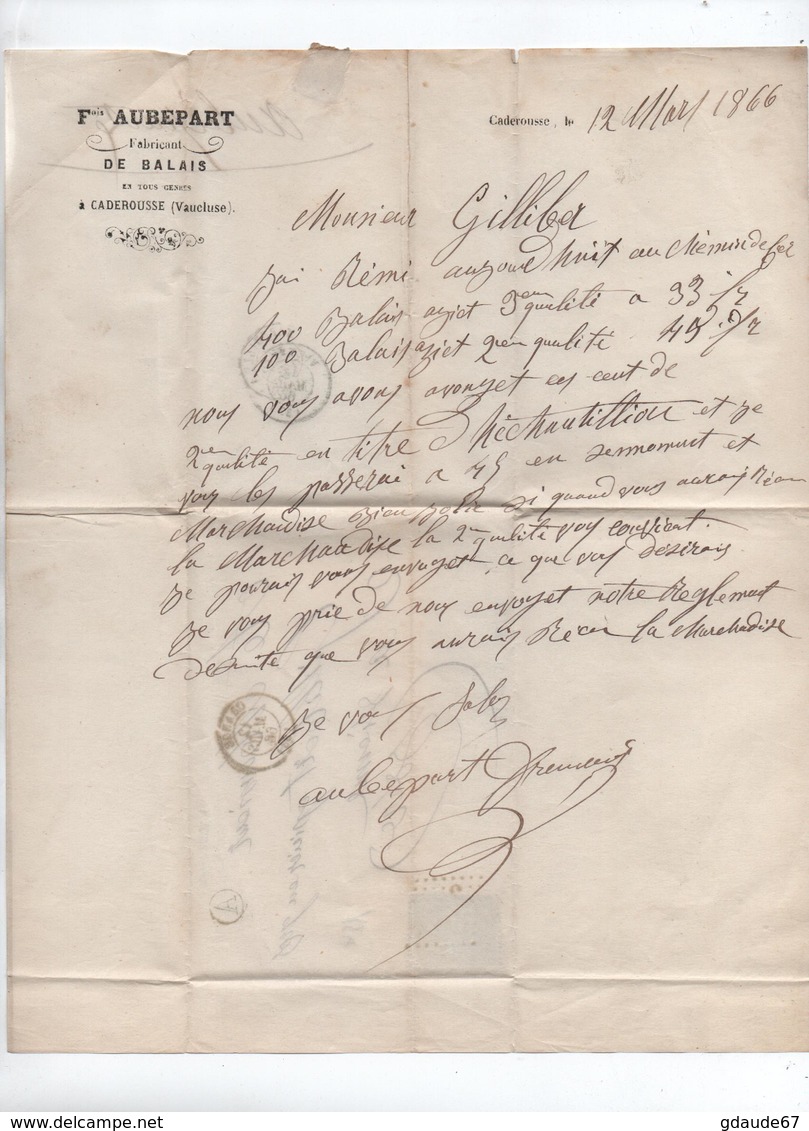 Fois AUBEPART
Fabricant
DE BALAIS
EN TOUS GENRES
à CADEROUSSE (Vaucluse).
Caderousse, le 12 Mars 1866
Monsieur Gilliber
jai Rémi aujourdhuit au chemin de fer
400 Balais 3em qualité a 33 fr
100 Balais 2em qualité 45 fr
nous vous avons avoyet ces cent de
2em qualité en titre dhéchantillion et je
vous les passerai a 45 en ce momant et
Marchandise si quand vous aurais Récu
la Marchandise la 2em qualité vous convient
je pourais vous envoyet ce que vous désirais
je vous prie de nous envoyet notre Reglement
desuite que vous aurais Récu la Marchandise
je vous salu
aubepart francois
A
gdaude67